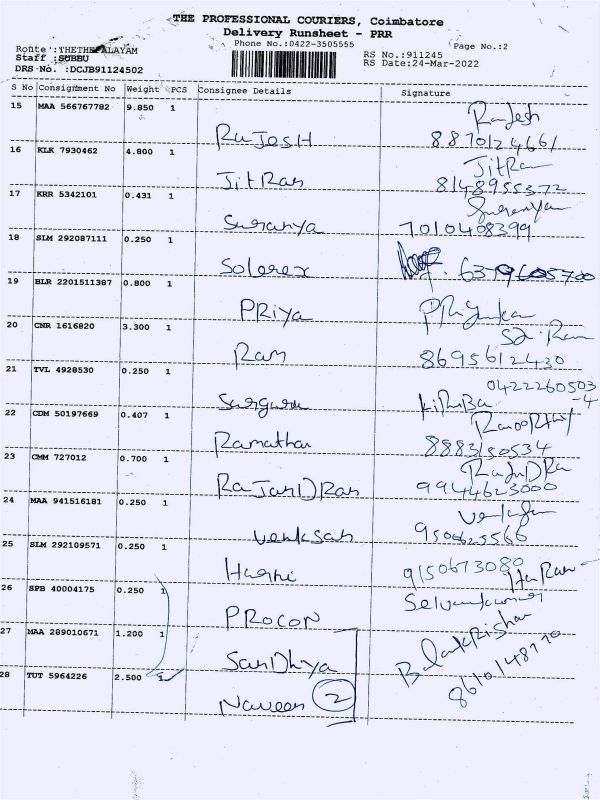 THE PROFESSIONAL COURIERS, Coimbatore
Delivery Runsheet - PRR
Phone No.:0422-3505555 Page No.:2
Route :THETHEPALAYAM
Staff :SUBBU RS No.:911245
DRS No. :DCJB91124502 RS Date:24-Mar-2022
S No Consignment No Weight PCS Consignee Details Signature
15 MAA 566767782 9.850 1 Rajesh
RaJESH 8870124661
16 KLK 7930462 4.800 1 JitRam
JitRam 8148955372
17 KRR 5342101 0.431 1
Suranya 7010408399
18 SLM 292087111 0.250 1
Solerex 6379605700
19 BLR 2201511387 0.800 1
PRiya PRiyanka
20 CNR 1616820 3.300 1 Sai Ram
Ram 8695612430
21 TVL 4928530 0.250 1 0422260503
-4
Surguru KiRuBa
22 CDM 50197669 0.407 1
Ramathan 8883150534
23 CMM 727012 0.700 1
RaJanDRan 9944623000
24 MAA 941516181 0.250 1
Venksan 9500625566
25 SLM 292109571 0.250 1
Hagni 9150673080
26 SPB 40004175 0.250 1 Selvankumar
PROCON
27 MAA 289010671 1.200 1 BalakRishan
SanDhya 8610148770
28 TUT 5964226 2.500 1
Naveen 2